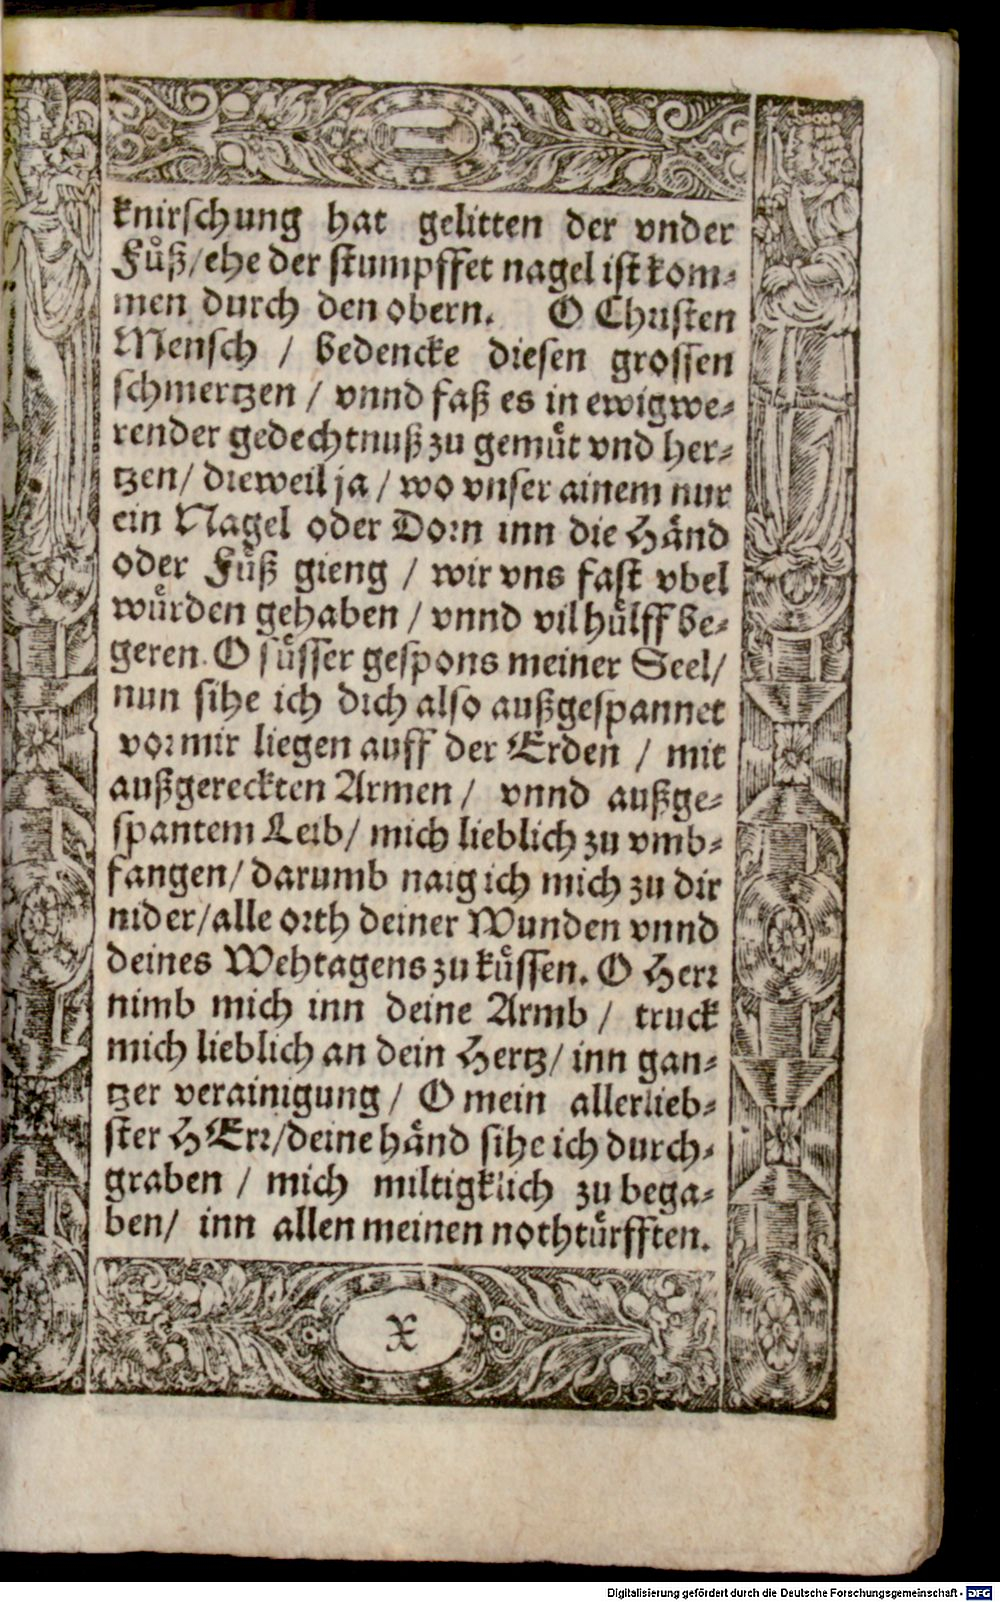 knirschung hat gelitten der vnder
Fuͤß/ehe der stumpffet nagel ist kom⸗
men durch den obern. O Christen
Mensch / bedencke diesen grossen
schmertzen / vnnd faß es in ewigwe⸗
render gedechtnuß zu gemuͤt vnd her⸗
tzen/ dieweil ja / wo vnser ainem nur
ein Nagel oder Dorn inn die Haͤnd
oder Fuͤß gieng / wir vns fast vbel
wuͤrden gehaben / vnnd vil huͤlff be⸗
geren. O suͤsser gespons meiner Seel/
nun sihe ich dich also außgespannet
vor mir liegen auff der Erden / mit
außgereckten Armen / vnnd außge⸗
spantem Leib/ mich lieblich zu vmb⸗
fangen/ darumb naig ich mich zu dir
nider/alle orth deiner Wunden vnnd
deines Wehtagens zu kuͤssen. O Herr
nimb mich inn deine Armb / truck
mich lieblich an dein Hertz/ inn gan⸗
tzer verainigung / O mein allerlieb⸗
ster HErr/deine haͤnd sihe ich durch⸗
graben / mich miltigklich zu bega⸗
ben/ inn allen meinen nothtuͤrfften.
X
Digitalisierung gefördert durch die Deutsche Forschungsgemeinschaft - DFG